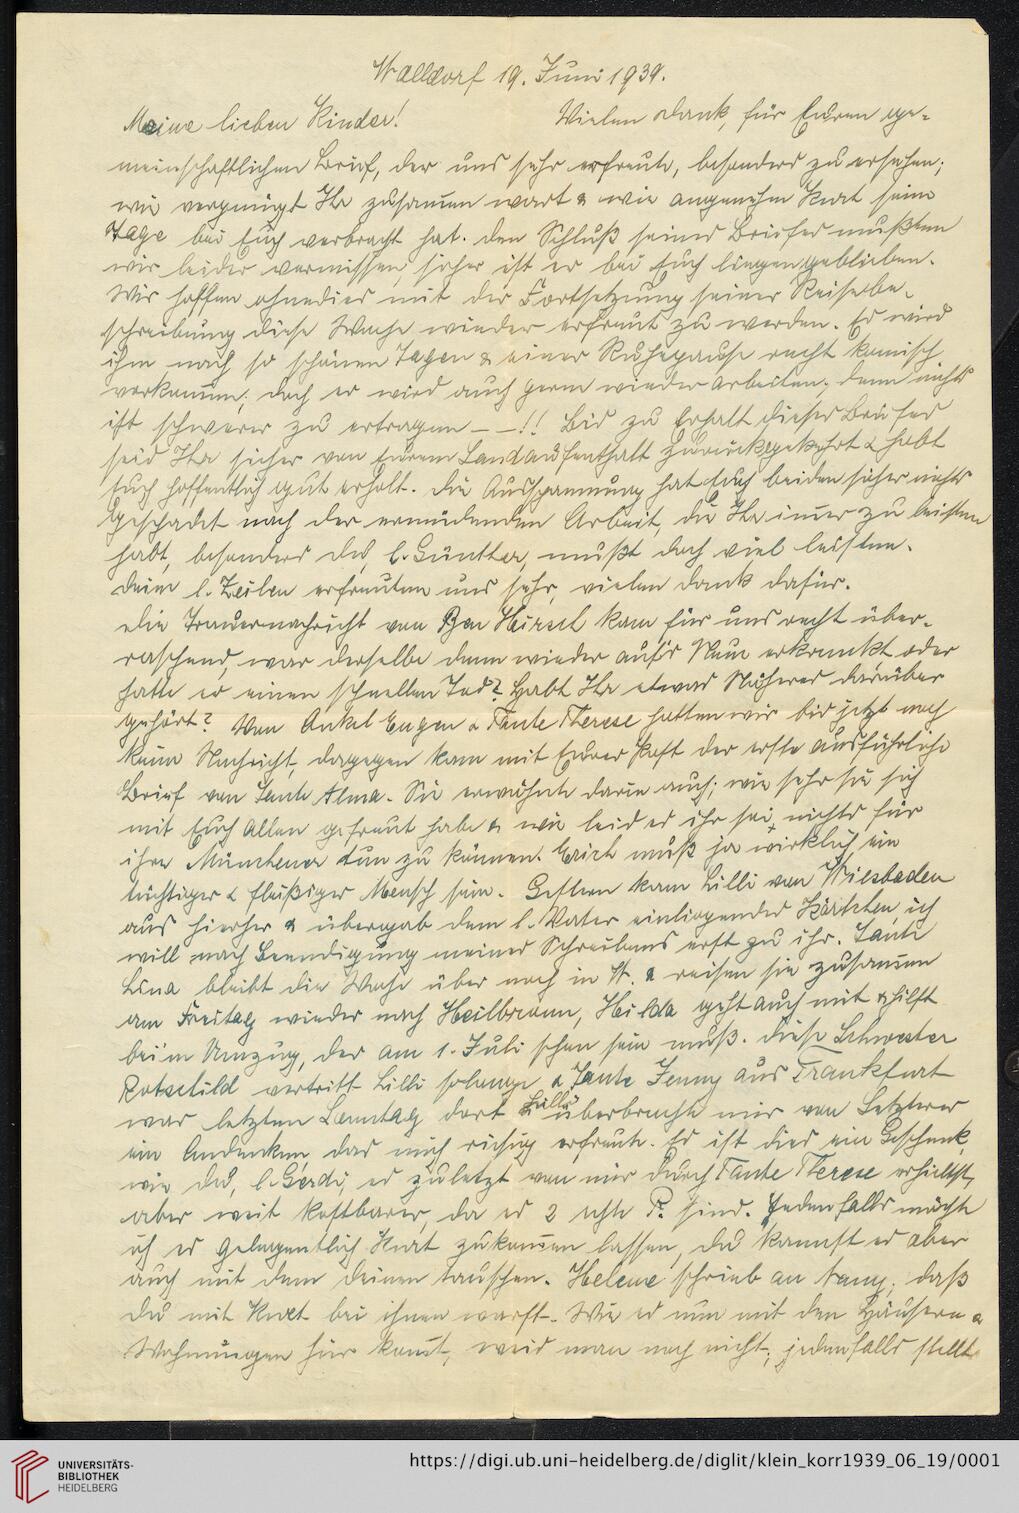 Walldorf 19. Juni 1939.
Meine lieben Kinder! Vielen Dank, für Euren ge-
meinschaftlichen Brief, der uns sehr erfreute, besonders zu ersehen;
wie vergnügt Ihr zusammen wart & wie angenehm Kurt seine
Tage bei Euch verbracht hat. Den Schluß seines Briefes mußten
wir leider vermissen, sicher ist er bei Euch liegen geblieben.
Wir hoffen ohnedies mit der Fortsetzung seiner Reisebe-
schreibung diese Woche wieder erfreut zu werden. Es wird
ihm nach so schönen Tagen & einer Ruhepause recht komisch
vorkommen; doch er wird auch gern wieder arbeiten, denn nichts
ist schwerer zu ertragen – –!! Bis zu Erhalt dieses Briefes
seid Ihr sicher von Eurem Landaufenthalt zurückgekehrt & habt
Euch hoffentlich gut erholt. Die Ausspannung hat Euch beiden sicher nichts
geschadet nach der ermüdenden Arbeit, die Ihr immer zu leisten
habt, besonders Du, l. Günther, mußt doch viel leisten.
Deine l. Zeilen erfreuten uns sehr, vielen Dank dafür.
Die Trauernachricht von Ben Hirsch kam für uns recht über-
raschend, war derselbe denn wieder auf's Neue erkrankt oder
hatte er einen schnellen Tod? Habt Ihr etwas Näheres darüber
gehört? Von Onkel Eugen & Tante Therese hatten wir bis jetzt noch
keine Nachricht, dagegen kam mit Eurer Post der erste ausführliche
Brief von Tante Alma. Sie erwähnte darin auch; wie sehr sie sich
mit Euch Allen gefreut habe & wie leid es ihr sei, nichts für
ihre Münchener tun zu können. Erich muß ja wirklich ein
tüchtiger & fleißiger Mensch sein. Gestern kam Lilli von Wiesbaden
aus hierher & übergab dem l. Vater einliegendes Kärtchen ich
will nach Beendigung meines Schreibens erst zu ihr. Tante
Lina bleibt die Woche über noch in W. & reisen sie zusammen
am Freitag wieder nach Heilbronn, Hilda geht auch mit & hilft
beim Umzug, der am 1. Juli schon sein muß. Diese Schwester
Rotschild vertritt Lilli solange & Tante Jenny aus Frankfurt
war letzten Sonntag dort & Lilly überbrachte mir von Letzterer
ein Andenken, das mich riesig erfreute. Es ist dies ein Geschenk,
wie Du, l. Gerdi, es zuletzt von mir durch Tante Therese erhieltst,
aber weit kostbarer, da es 2 echte P. sind. Jedenfalls möchte
ich es gelegentlich Kurt zukommen lassen, Du kannst es aber
auch mit dem Deinen tauschen. Helene schrieb an Nany, daß
Du mit Kurt bei ihnen warst. Wie es nun mit den Häusern &
Wohnungen hier kommt, weis man noch nicht; jedenfalls stellt
UNIVERSITÄTS-
BIBLIOTHEK
HEIDELBERG
https://digi.ub.uni-heidelberg.de/diglit/klein_korr1939_06_19/0001